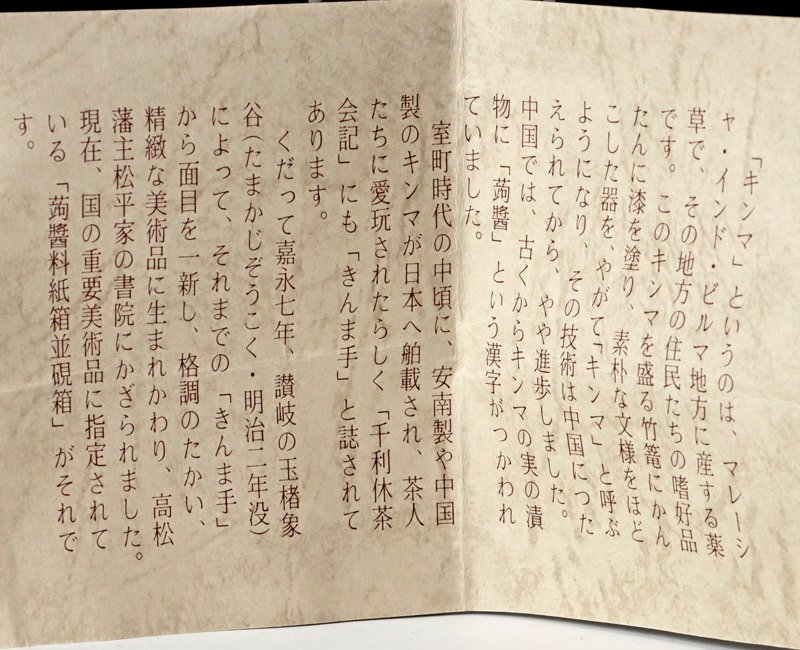 「キンマ」というのは、マレーシ
ヤ・インド・ビルマ地方に産する薬
草で、その地方の住民たちの嗜好品
です。このキンマを盛る竹篭にかん
たんに漆を塗り、素朴な文様をほど
こした器を、やがて「キンマ」と呼ぶ
ようになり、その技術は中国につた
えられてから、やや進歩しました。
中国では、古くからキンマの実の漬
物に「蒟醬」という漢字がつかわれ
ていました。
室町時代の中頃に、安南製や中国
製のキンマが日本へ舶載され、茶人
たちに愛玩されたらしく「千利休茶
会記」にも「きんま手」と誌されて
あります。
くだって嘉永七年、讃岐の玉楮象
谷(たまかじぞうこく・明治二年没)
によって、それまでの「きんま手」
から面目を一新し、格調のたかい、
精緻な美術品に生まれかわり、高松
藩主松平家の書院にかざられました。
現在、国の重要美術品に指定されて
いる「蒟醬料紙箱並硯箱」がそれで
す。